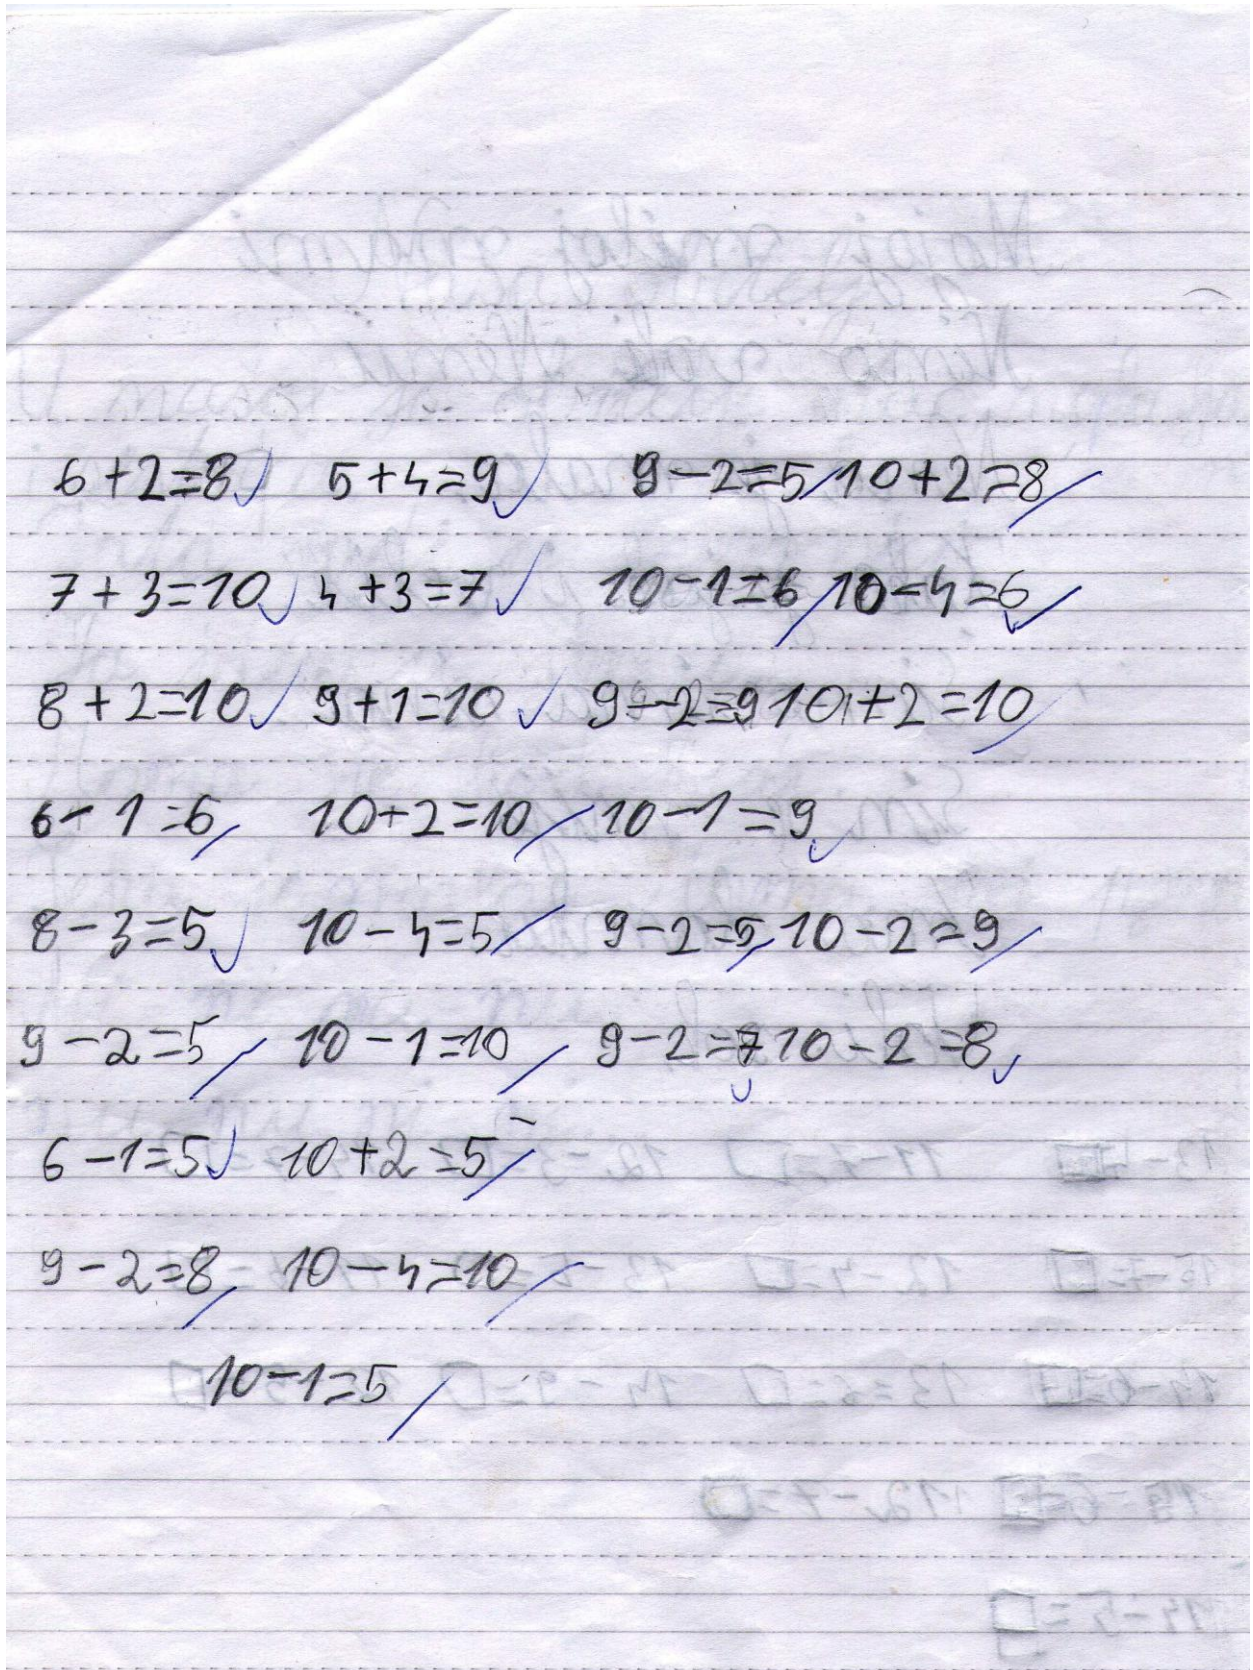 6+2=8 5+4=9 9-2=5 10+2=8
7+3=10 4+3=7 10-1=6 10-4=6
8+2=10 9+1=10 9-2=9 10+2=10
6-1=6 10+2=10 10-1=9
8-3=5 10-4=5 9-2=5 10-2=9
9-2=5 10-1=10 9-2=7 10-2=8
6-1=5 10+2=5
9-2=8 10-4=10
10-1=5